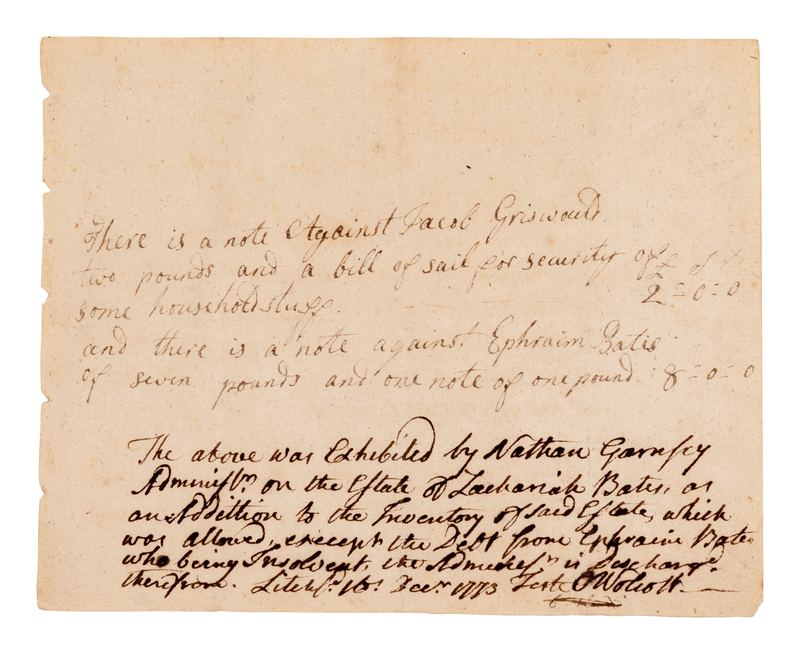 There is a note Against Jacob Griswould
two pounds and a bill of sail for security of £ s d
some householdstuff. 2=0=0
and there is a note against Ephraim Bates
of seven pounds and one note of one pound. 8=0=0
The above was Exhibited by Nathan Garnsey
Administr on the Estate of Zachariah Bates, as
an Addittion to the Inventory of said Estate, which
was allowed, except the Debt from Ephraim Bates
who being Insolvent, the Adminestr is Discharged
therefrom. Litchfd 16 Decr 1773 Test OWolcott.